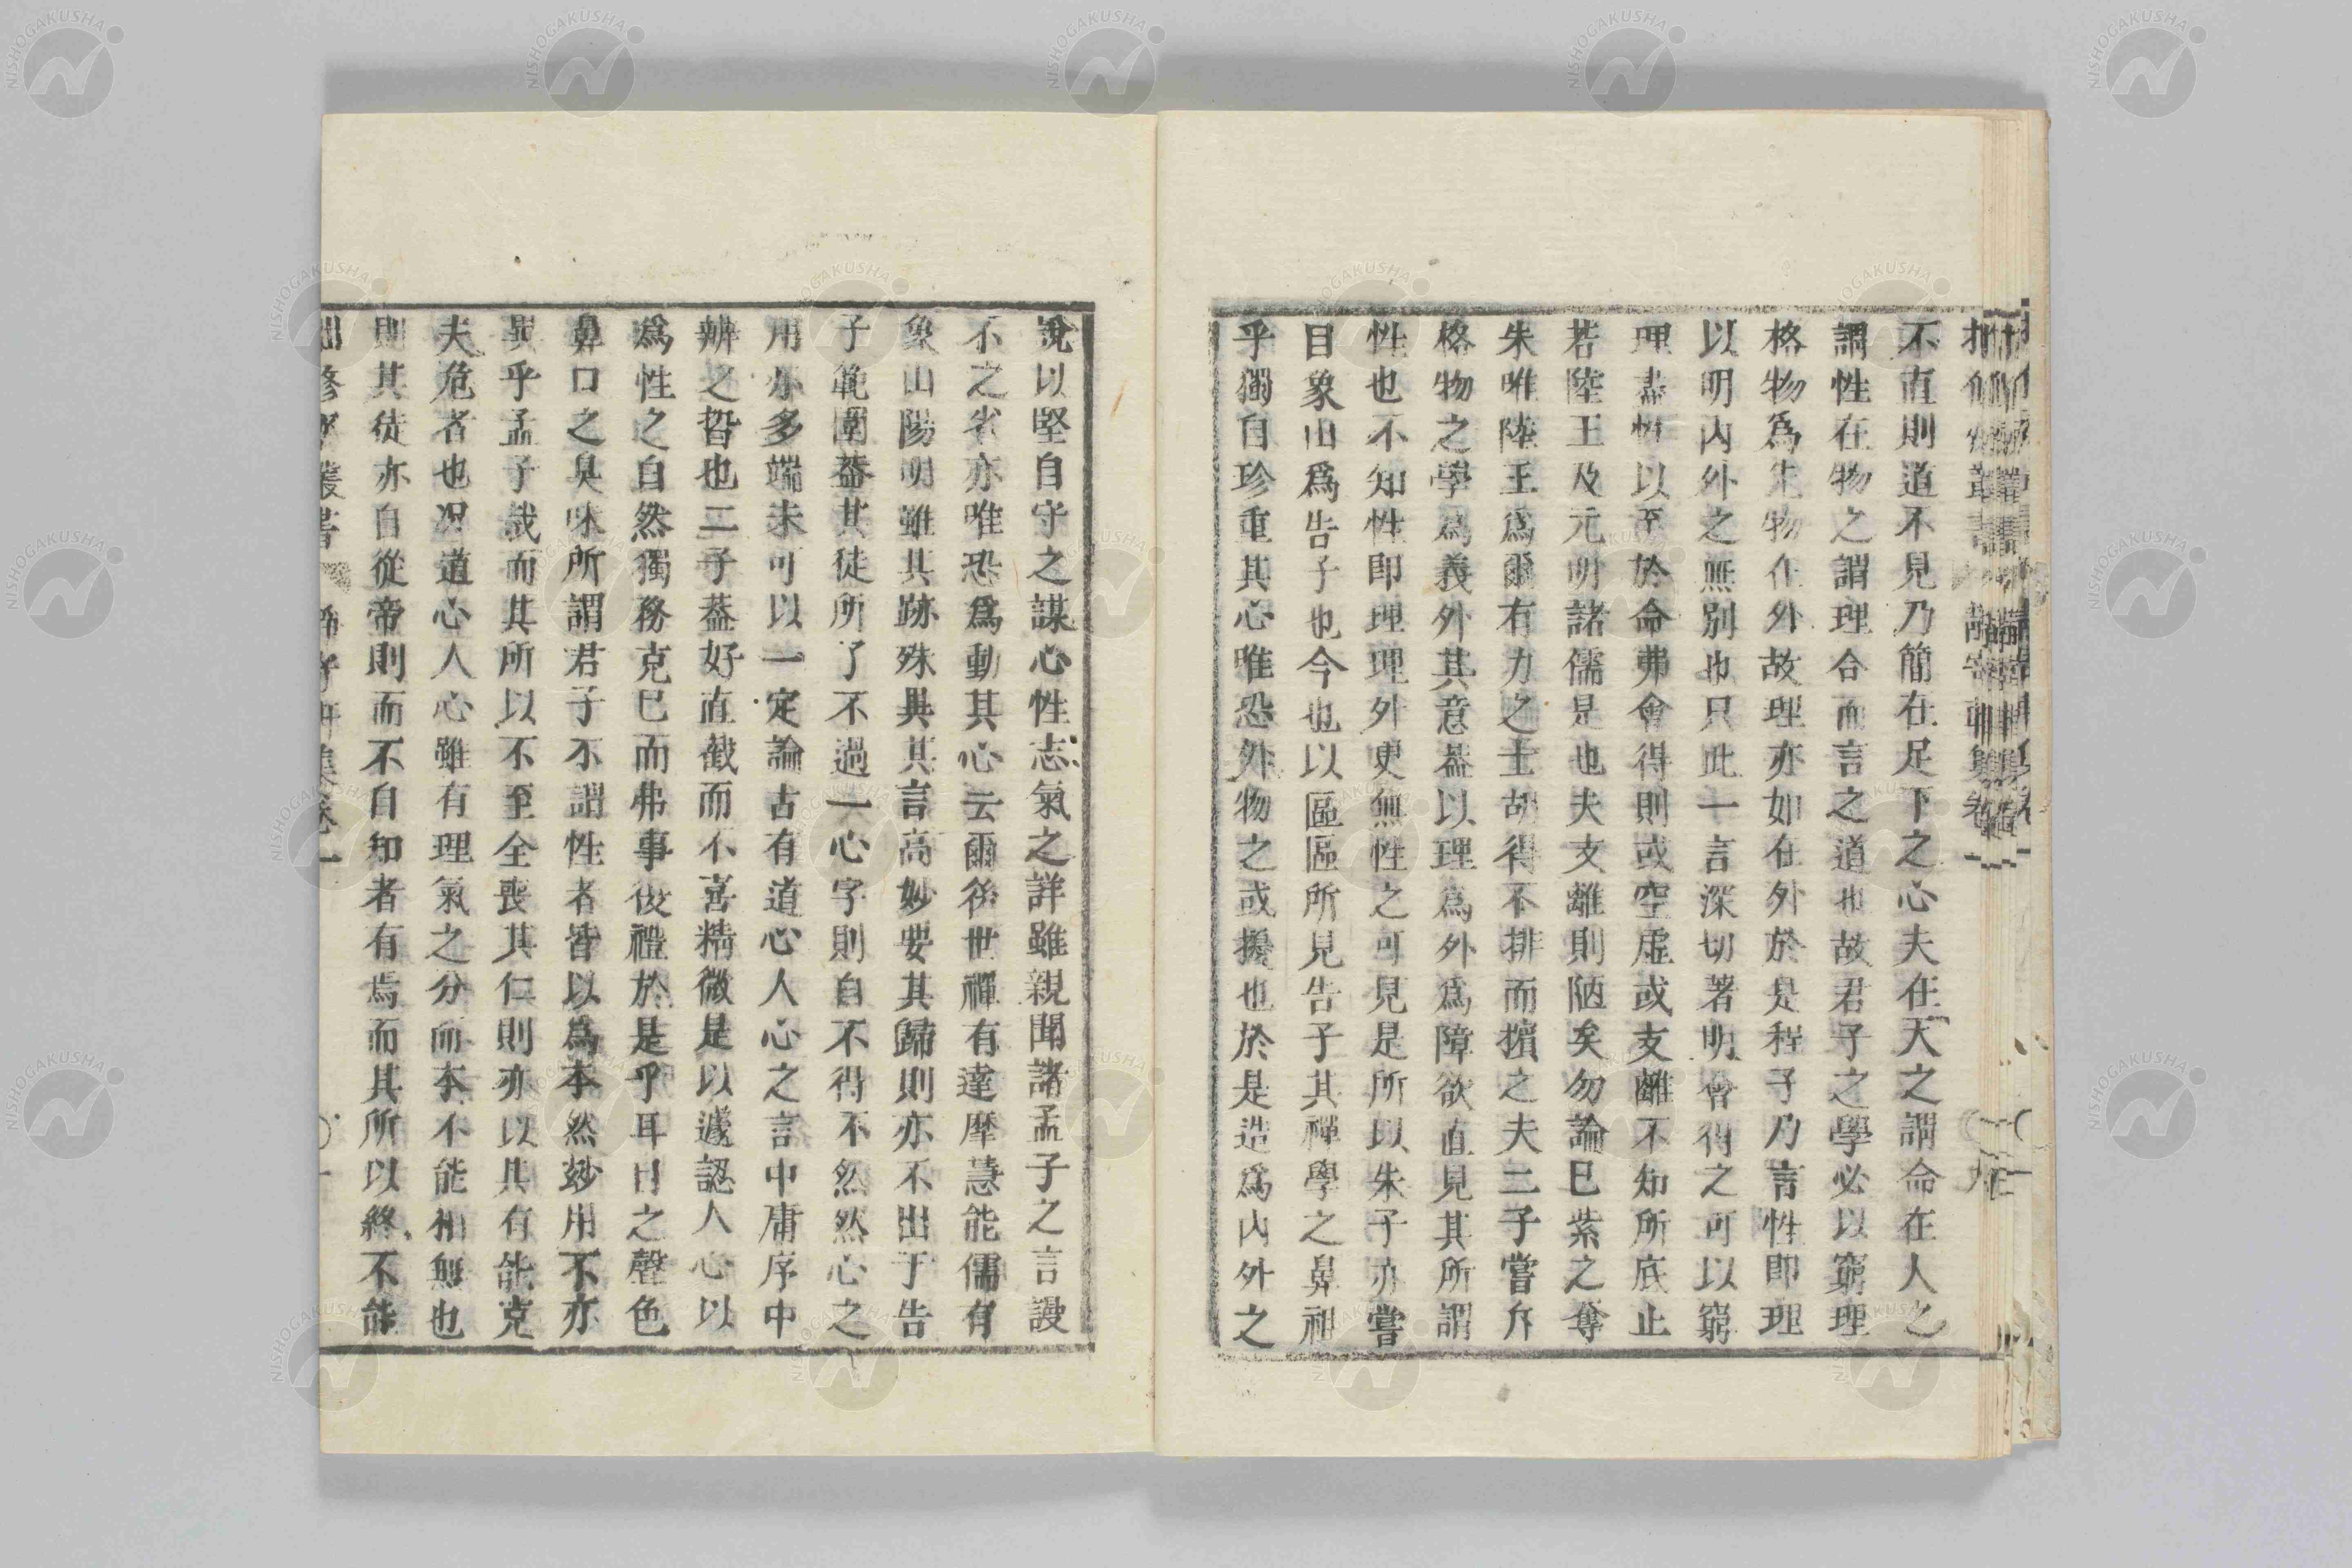 不直則道不見乃簡在足下之心夫在天之謂命在人之
謂性在物之謂理合而言之道也故君子之學必以窮理
格物爲先物在外故理亦如在外於是程子乃言性即理
以明內外之無別也只此一言深切著明會得之可以窮
理盡性以至於命弗會得則或空虛或支離不知所底止
若陸王及元明諸儒是也夫支離則陋矣勿論已紫之奪
朱唯陸王爲爾有力之士胡得不排而擯之夫二子嘗斥
格物之學爲義外其意蓋以理爲外爲障欲直見其所謂
性也不知性即理理外更無性之可見是所以朱子亦嘗
目象山爲告子也今也以區區所見告子其禪學之鼻祖
乎獨自珍重其心唯恐外物之或擾也於是造爲內外之
說以堅自守之謀心性志氣之詳雖親聞諸孟子之言謾
不之省亦唯恐爲動其心云爾後世禪有達摩慧能儒有
象山陽明雖其跡殊與其言高妙要其歸則亦不出于告
子範圍蓋其徒所了不過一心字則自不得不然然心之
用亦多端未可以一定論古有道心人心之言中庸序中
辨之晳也二子蓋好直截而不喜精微是以遽認人心以
爲性之自然獨務克己而弗事復禮於是乎耳目之聲色
鼻口之臭味所謂君子不謂性者皆以爲本然玅用不亦
異乎孟子哉而其所以不至全喪其仁則亦以其有能克
夫危者也况道心人心雖有理氣之分而本不能相無也
則其徒亦自從帝則而不自知者有焉而其所以終不能
修 叢書 集卷一
NISHOGAKUSHA